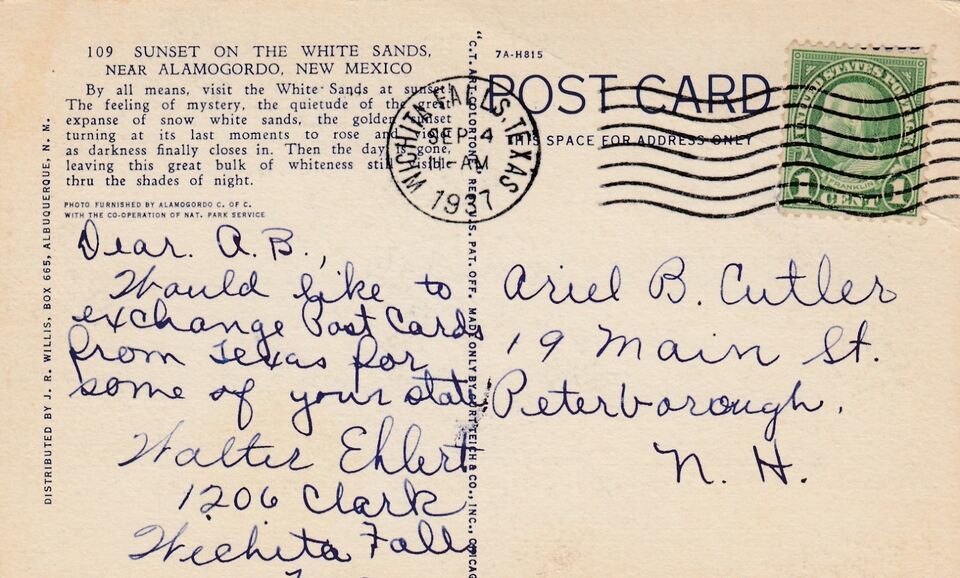 109 SUNSET ON THE WHITE SANDS,
NEAR ALAMOGORDO, NEW MEXICO
By all means, visit the White Sands at sunset.
The feeling of mystery, the quietude of the great
expanse of snow white sands, the golden sunset
turning at its last moments to rose and
as darkness finally closes in. Then the day gone,
leaving this great bulk of whiteness still visible
thru the shades of night.
PHOTO FURNISHED BY ALAMOGORDO C. OF C.
WITH THE CO-OPERATION OF NAT. PARK SERVICE
DISTRIBUTED BY J. R. WILLIS, BOX 665, ALBUQUERQUE, N. M.
Dear. A. B.,
Would like to
exchange Post Cards
from Texas for
some of your state
Walter Ehlert
1206 Clark
Wichita Falls
"C.T. ART-COLORTONE" REG. U.S. PAT. OFF. MADE ONLY BY CURT TEICH & CO., INC., CHICAGO
7A-H815
POST CARD
THIS SPACE FOR ADDRESS ONLY
WICHITA FALLS, TEXAS
SEP 4
11-AM
1937
UNITED STATES POSTAGE
FRANKLIN
1 CENT 1
Ariel B. Cutler
19 Main St.
Peterborough,
N. H.